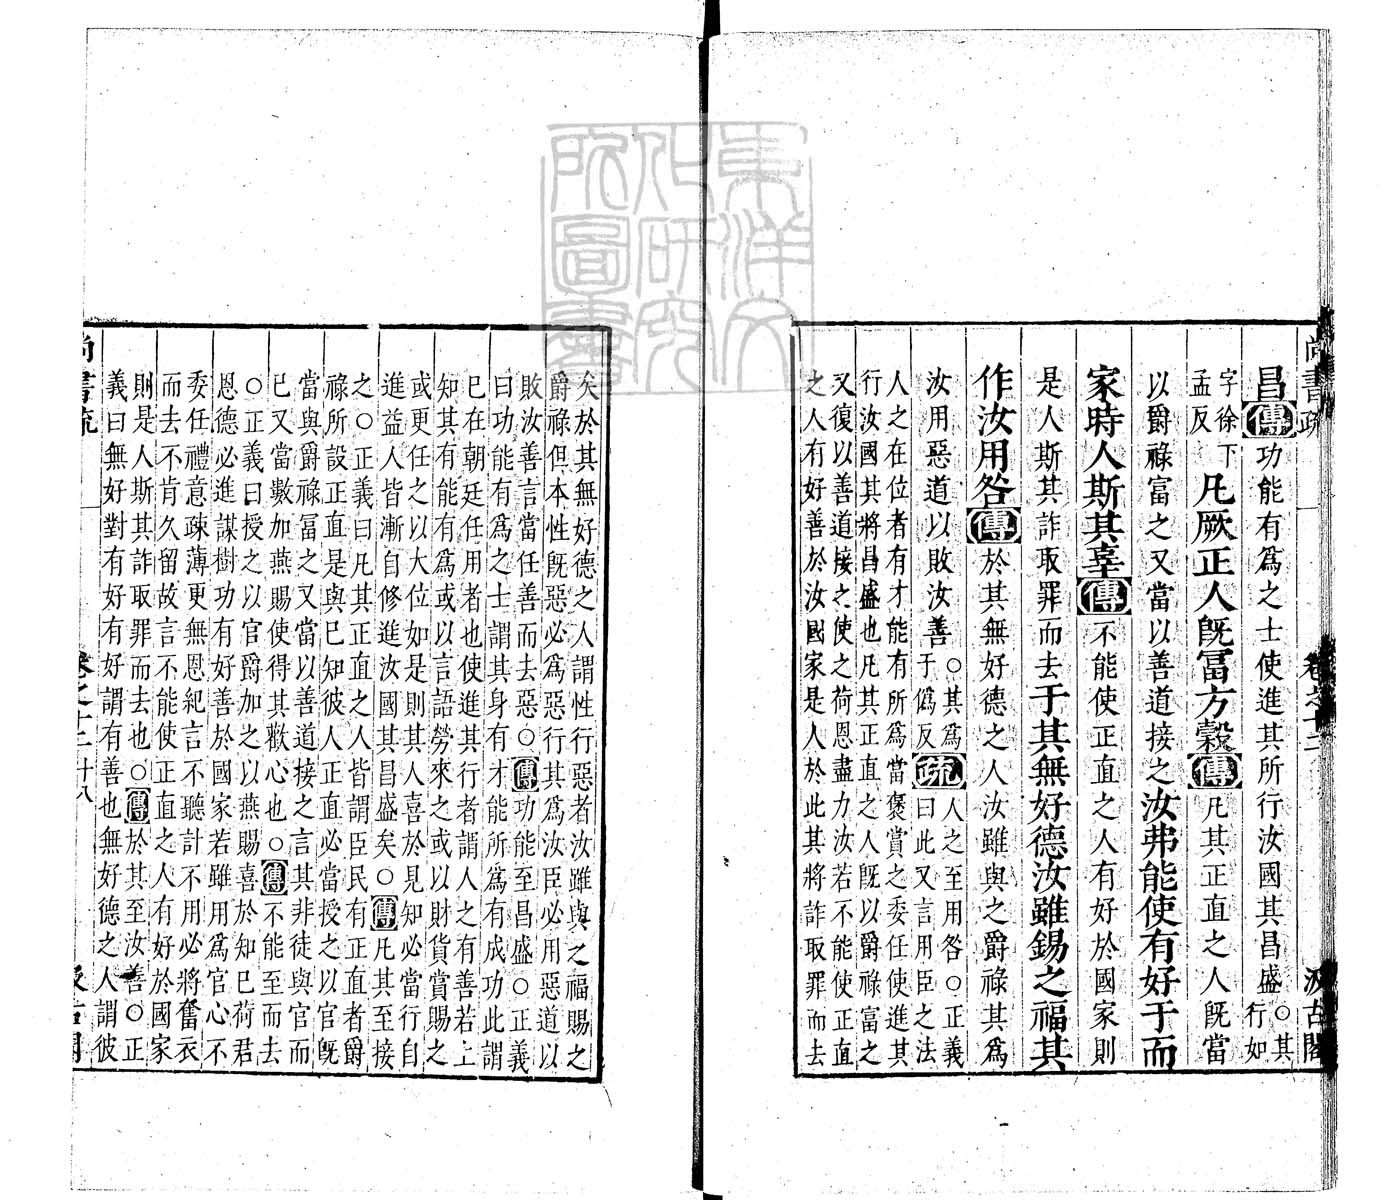 尚書疏
卷之十二
汲古閣
昌傳功能有爲之士使進其所行汝國其昌盛○其
行如
字徐下
孟反
凡厥正人旣冨方穀傳凡其正直之人旣當
以爵祿富之又當以善道接之汝弗能使有好于而
家時人斯其辜傳不能使正直之人有好於國家則
是人斯其詐取罪而去于其無好德汝雖錫之福其
作汝用咎傳於其無好德之人汝雖與之爵祿其爲
汝用惡道以敗汝善○其爲
于僞反
疏人之至用咎○正義
曰此又言用臣之法
人之在位者有才能有所爲當褒賞之委任使進其
行汝國其將昌盛也凡其正直之人旣以爵祿富之
又復以善道接之使之荷恩盡力汝若不能使正直
之人有好善於汝國家是人於此其將詐取罪而去
矣於其無好德之人謂性行惡者汝雖與之福賜之
爵祿但本性旣惡必爲惡行其爲汝臣必用惡道以
敗汝善言當任善而去惡○傳功能至昌盛○正義
曰功能有爲之士謂其身有才能所爲有成功此謂
已在朝廷任用者也使進其行者謂人之有善若上
知其有能有爲或以言語勞來之或以財貨賞賜之
或更任之以大位如是則其人喜於見知必當行自
進益人皆漸自修進汝國其昌盛矣○傳凡其至接
之○正義曰凡其正直之人皆謂臣民有正直者爵
祿所設正直是與已知彼人正直必當授之以官旣
當與爵祿冨之又當以善道接之言其非徒與官而
已又當數加燕賜使得其歡心也○傳不能至而去
○正義曰授之以官爵加之以燕賜喜於知已荷君
恩德必進謀樹功有好善於國家若雖用爲官心不
委任禮意疎薄更無恩紀言不聽計不用必將奮衣
而去不肯久留故言不能使正直之人有好於國家
則是人斯其詐取罪而去也○傳於其至汝善○正
義曰無好對有好有好謂有善也無好德之人謂彼
尚書疏
卷之十二
十八
汲古閣
東洋文
化研究
所圖書